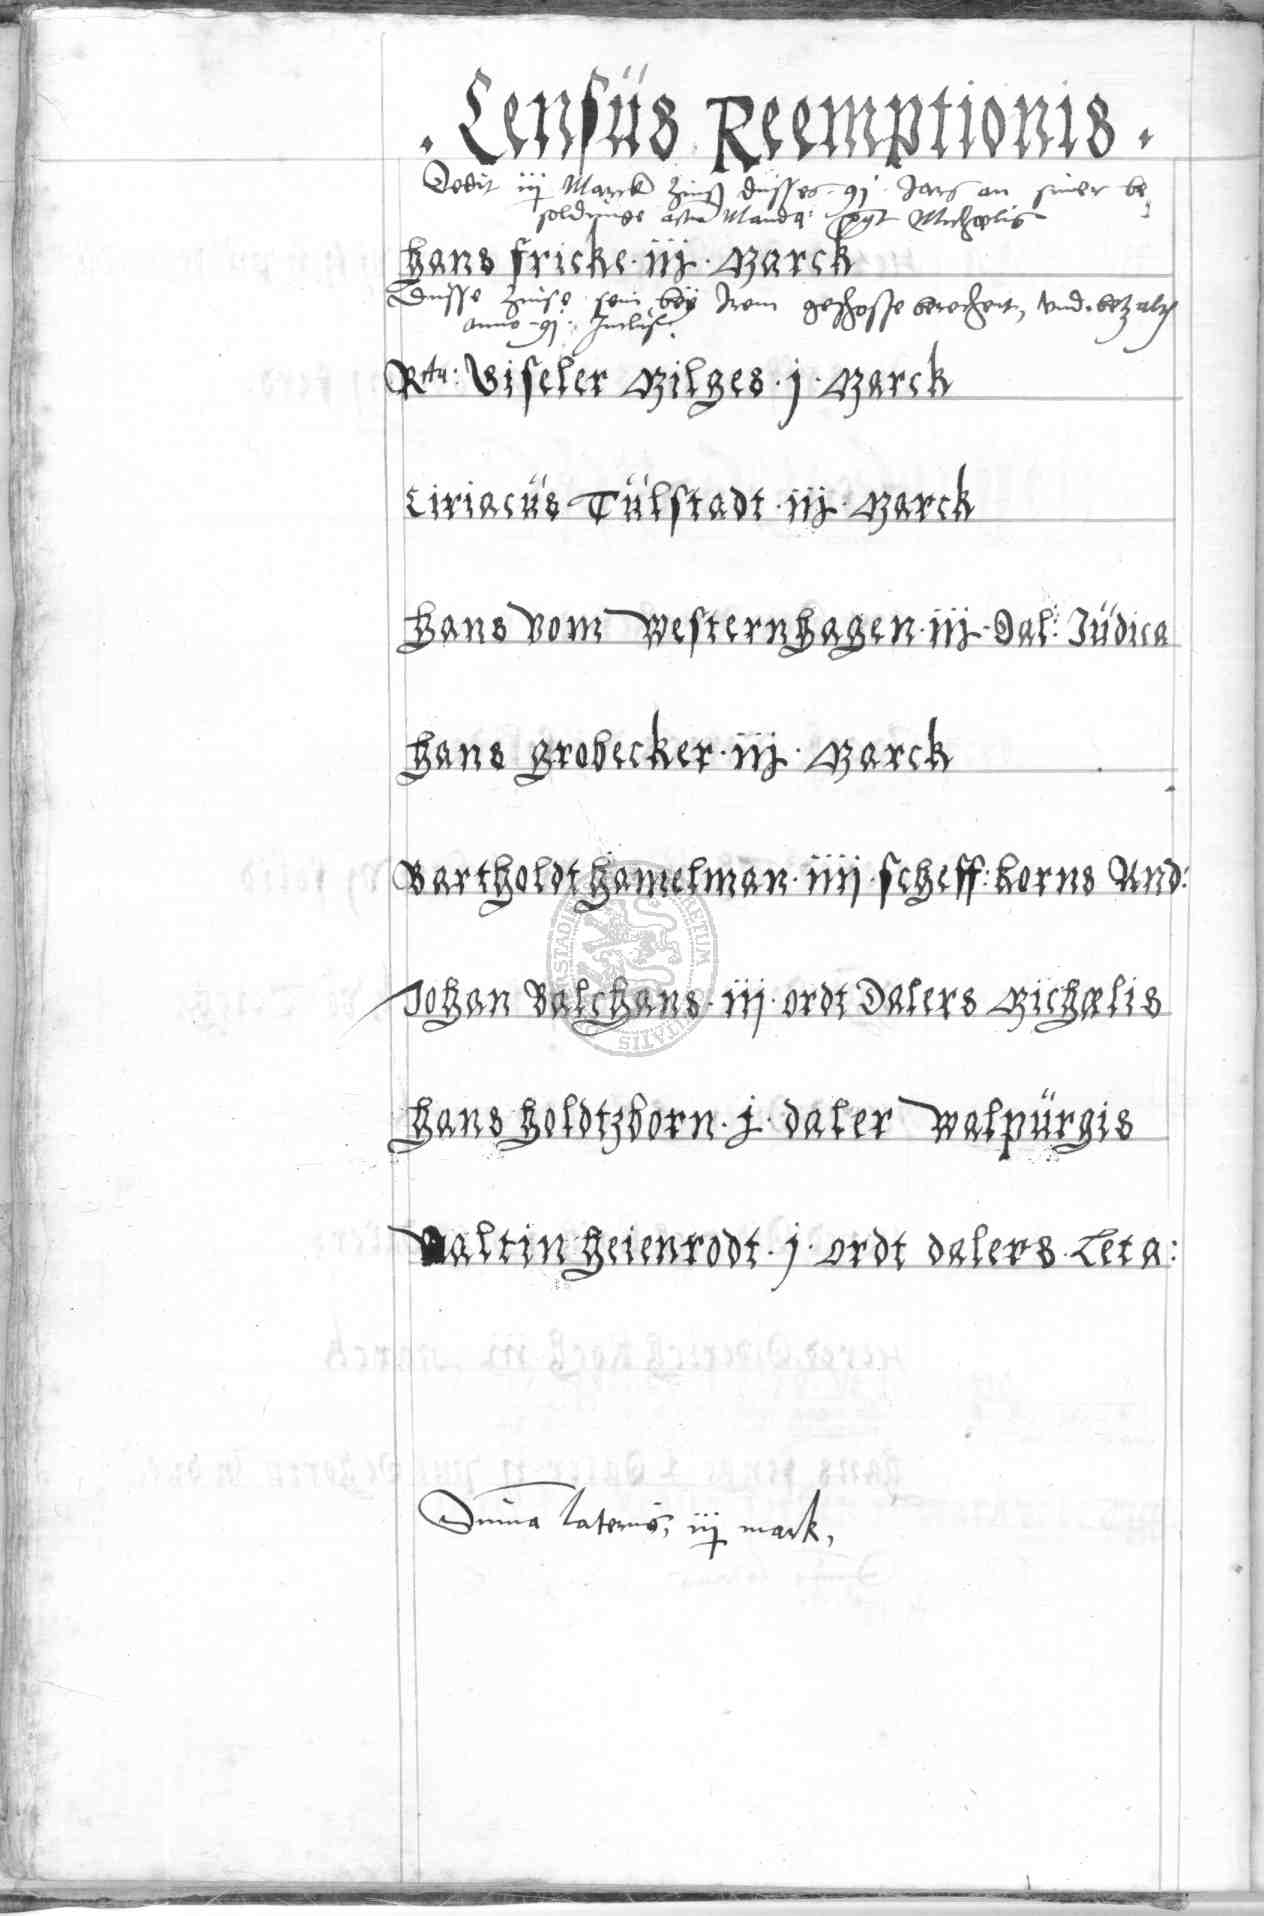 . Censüs Reemptionis .
Dedit iij Marck Zinß düsses 91 Jars an siner be
soldunge Michaelis
Hans Fricke · iij · Marck
Düsse Zinse sein bey Irem geschosse berechent, vnd betzalt
anno 91
Rta: Giseler Milges · j · Marck
Ciriacüs Tülstadt · iij · Marck
Hans vom Westernhagen · iij · Dal: Jüdica
Hans Grobecker · iij · Marck
Bartholdt Hamelman · iiij · scheff: korns And:
Johan Balchans · iij · ordt Dalers Michaelis
Hans Holdtzborn · j · daler Walpürgis
Valtin Heienrodt · j · ordt dalers Leta:
Suma lateris, iij mark,